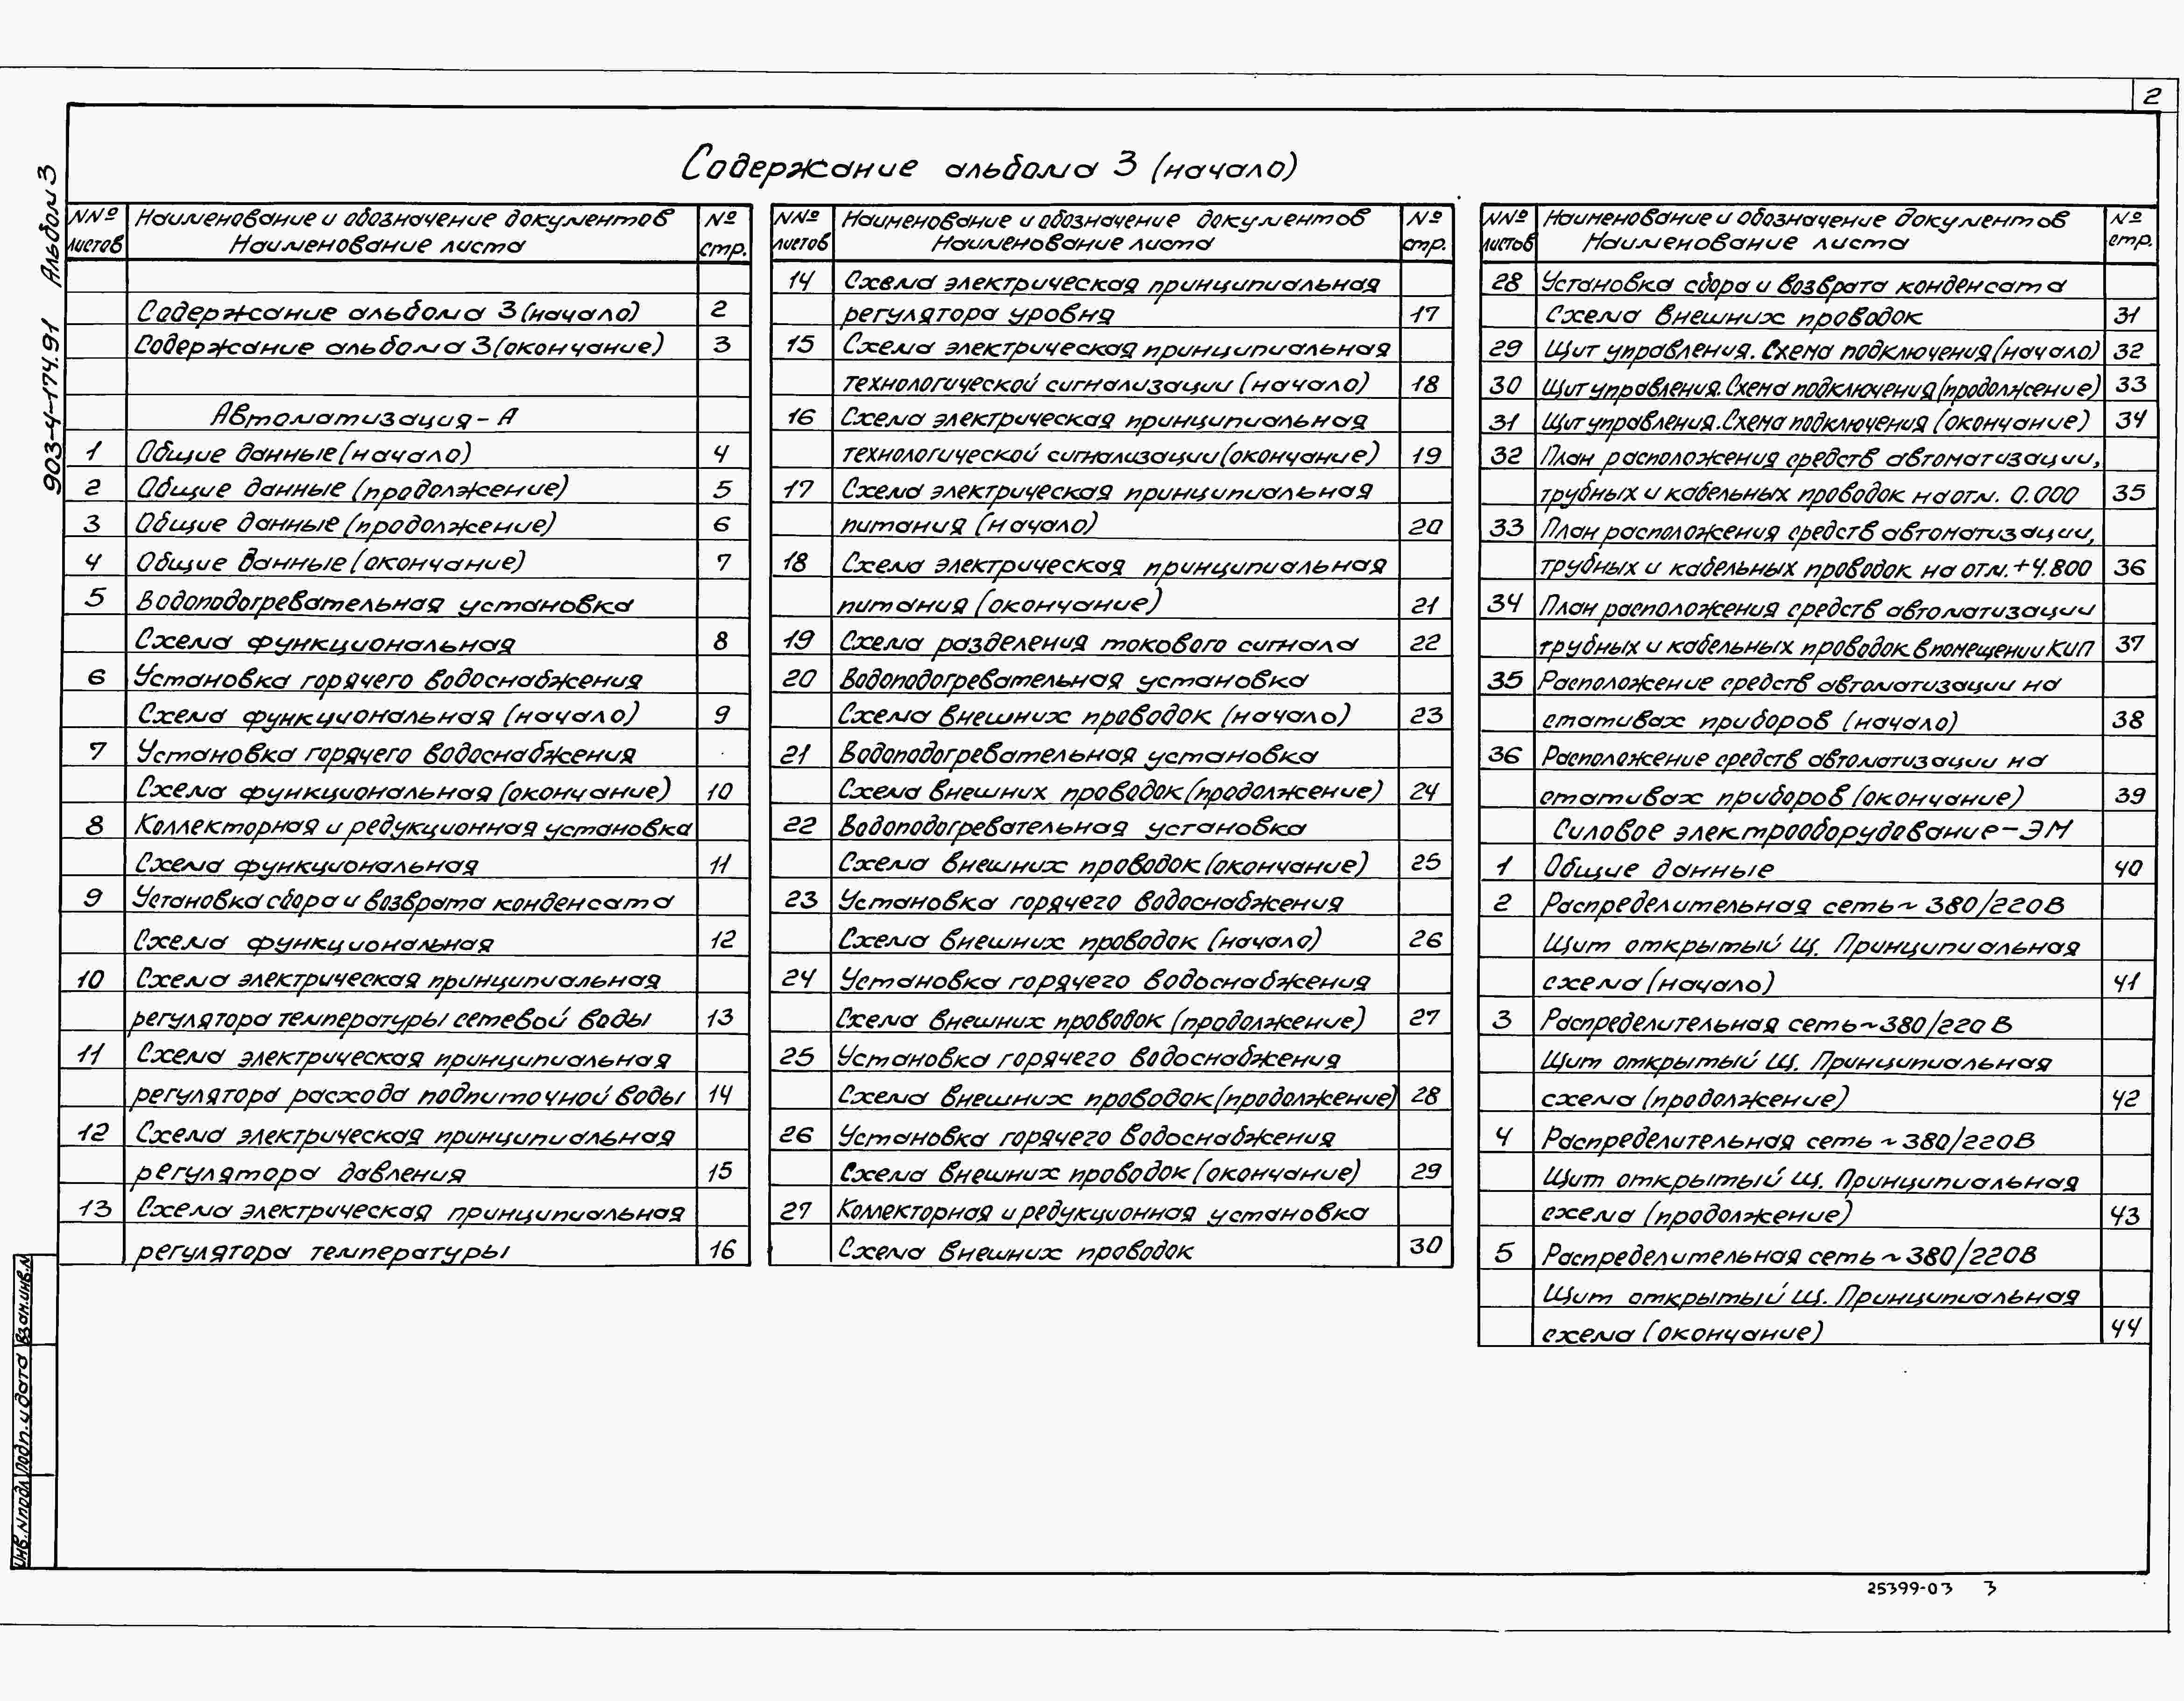 2
903-4-174.91 Альбом 3
Содержание альбома 3 (начало)
NNº листов | Наименование и обозначение документов Наименование листа | Nº стр.
Содержание альбома 3 (начало) 2
Содержание альбома 3 (окончание) 3
Автоматизация - А
1 Общие данные (начало) 4
2 Общие данные (продолжение) 5
3 Общие данные (продолжение) 6
4 Общие данные (окончание) 7
5 Водоподогревательная установка
Схема функциональная 8
6 Установка горячего водоснабжения
Схема функциональная (начало) 9
7 Установка горячего водоснабжения
Схема функциональная (окончание) 10
8 Коллекторная и редукционная установка
Схема функциональная 11
9 Установка сбора и возврата конденсата
Схема функциональная 12
10 Схема электрическая принципиальная
регулятора температуры сетевой воды 13
11 Схема электрическая принципиальная
регулятора расхода подпиточной воды 14
12 Схема электрическая принципиальная
регулятора давления 15
13 Схема электрическая принципиальная
регулятора температуры 16
NNº листов | Наименование и обозначение документов Наименование листа | Nº стр.
14 Схема электрическая принципиальная
регулятора уровня 17
15 Схема электрическая принципиальная
технологической сигнализации (начало) 18
16 Схема электрическая принципиальная
технологической сигнализации (окончание) 19
17 Схема электрическая принципиальная
питания (начало) 20
18 Схема электрическая принципиальная
питания (окончание) 21
19 Схема разделения токового сигнала 22
20 Водоподогревательная установка
Схема внешних проводок (начало) 23
21 Водоподогревательная установка
Схема внешних проводок (продолжение) 24
22 Водоподогревательная установка
Схема внешних проводок (окончание) 25
23 Установка горячего водоснабжения
Схема внешних проводок (начало) 26
24 Установка горячего водоснабжения
Схема внешних проводок (продолжение) 27
25 Установка горячего водоснабжения
Схема внешних проводок (продолжение) 28
26 Установка горячего водоснабжения
Схема внешних проводок (окончание) 29
27 Коллекторная и редукционная установка
Схема внешних проводок 30
NNº листов | Наименование и обозначение документов Наименование листа | Nº стр.
28 Установка сбора и возврата конденсата
Схема внешних проводок 31
29 Щит управления. Схема подключения (начало) 32
30 Щит управления. Схема подключения (продолжение) 33
31 Щит управления. Схема подключения (окончание) 34
32 План расположения средств автоматизации,
трубных и кабельных проводок на отм. 0.000 35
33 План расположения средств автоматизации,
трубных и кабельных проводок на отм. +4.800 36
34 План расположения средств автоматизации
трубных и кабельных проводок в помещении КИП 37
35 Расположение средств автоматизации на
стативах приборов (начало) 38
36 Расположение средств автоматизации на
стативах приборов (окончание) 39
Силовое электрооборудование - ЭМ
1 Общие данные 40
2 Распределительная сеть ~ 380/220В
Щит открытый Щ. Принципиальная
схема (начало) 41
3 Распределительная сеть ~ 380/220В
Щит открытый Щ. Принципиальная
схема (продолжение) 42
4 Распределительная сеть ~ 380/220В
Щит открытый Щ. Принципиальная
схема (продолжение) 43
5 Распределительная сеть ~ 380/220В
Щит открытый Щ. Принципиальная
схема (окончание) 44
Инв. N подл. Подп. и дата Взам. инв. N
25399-03 3